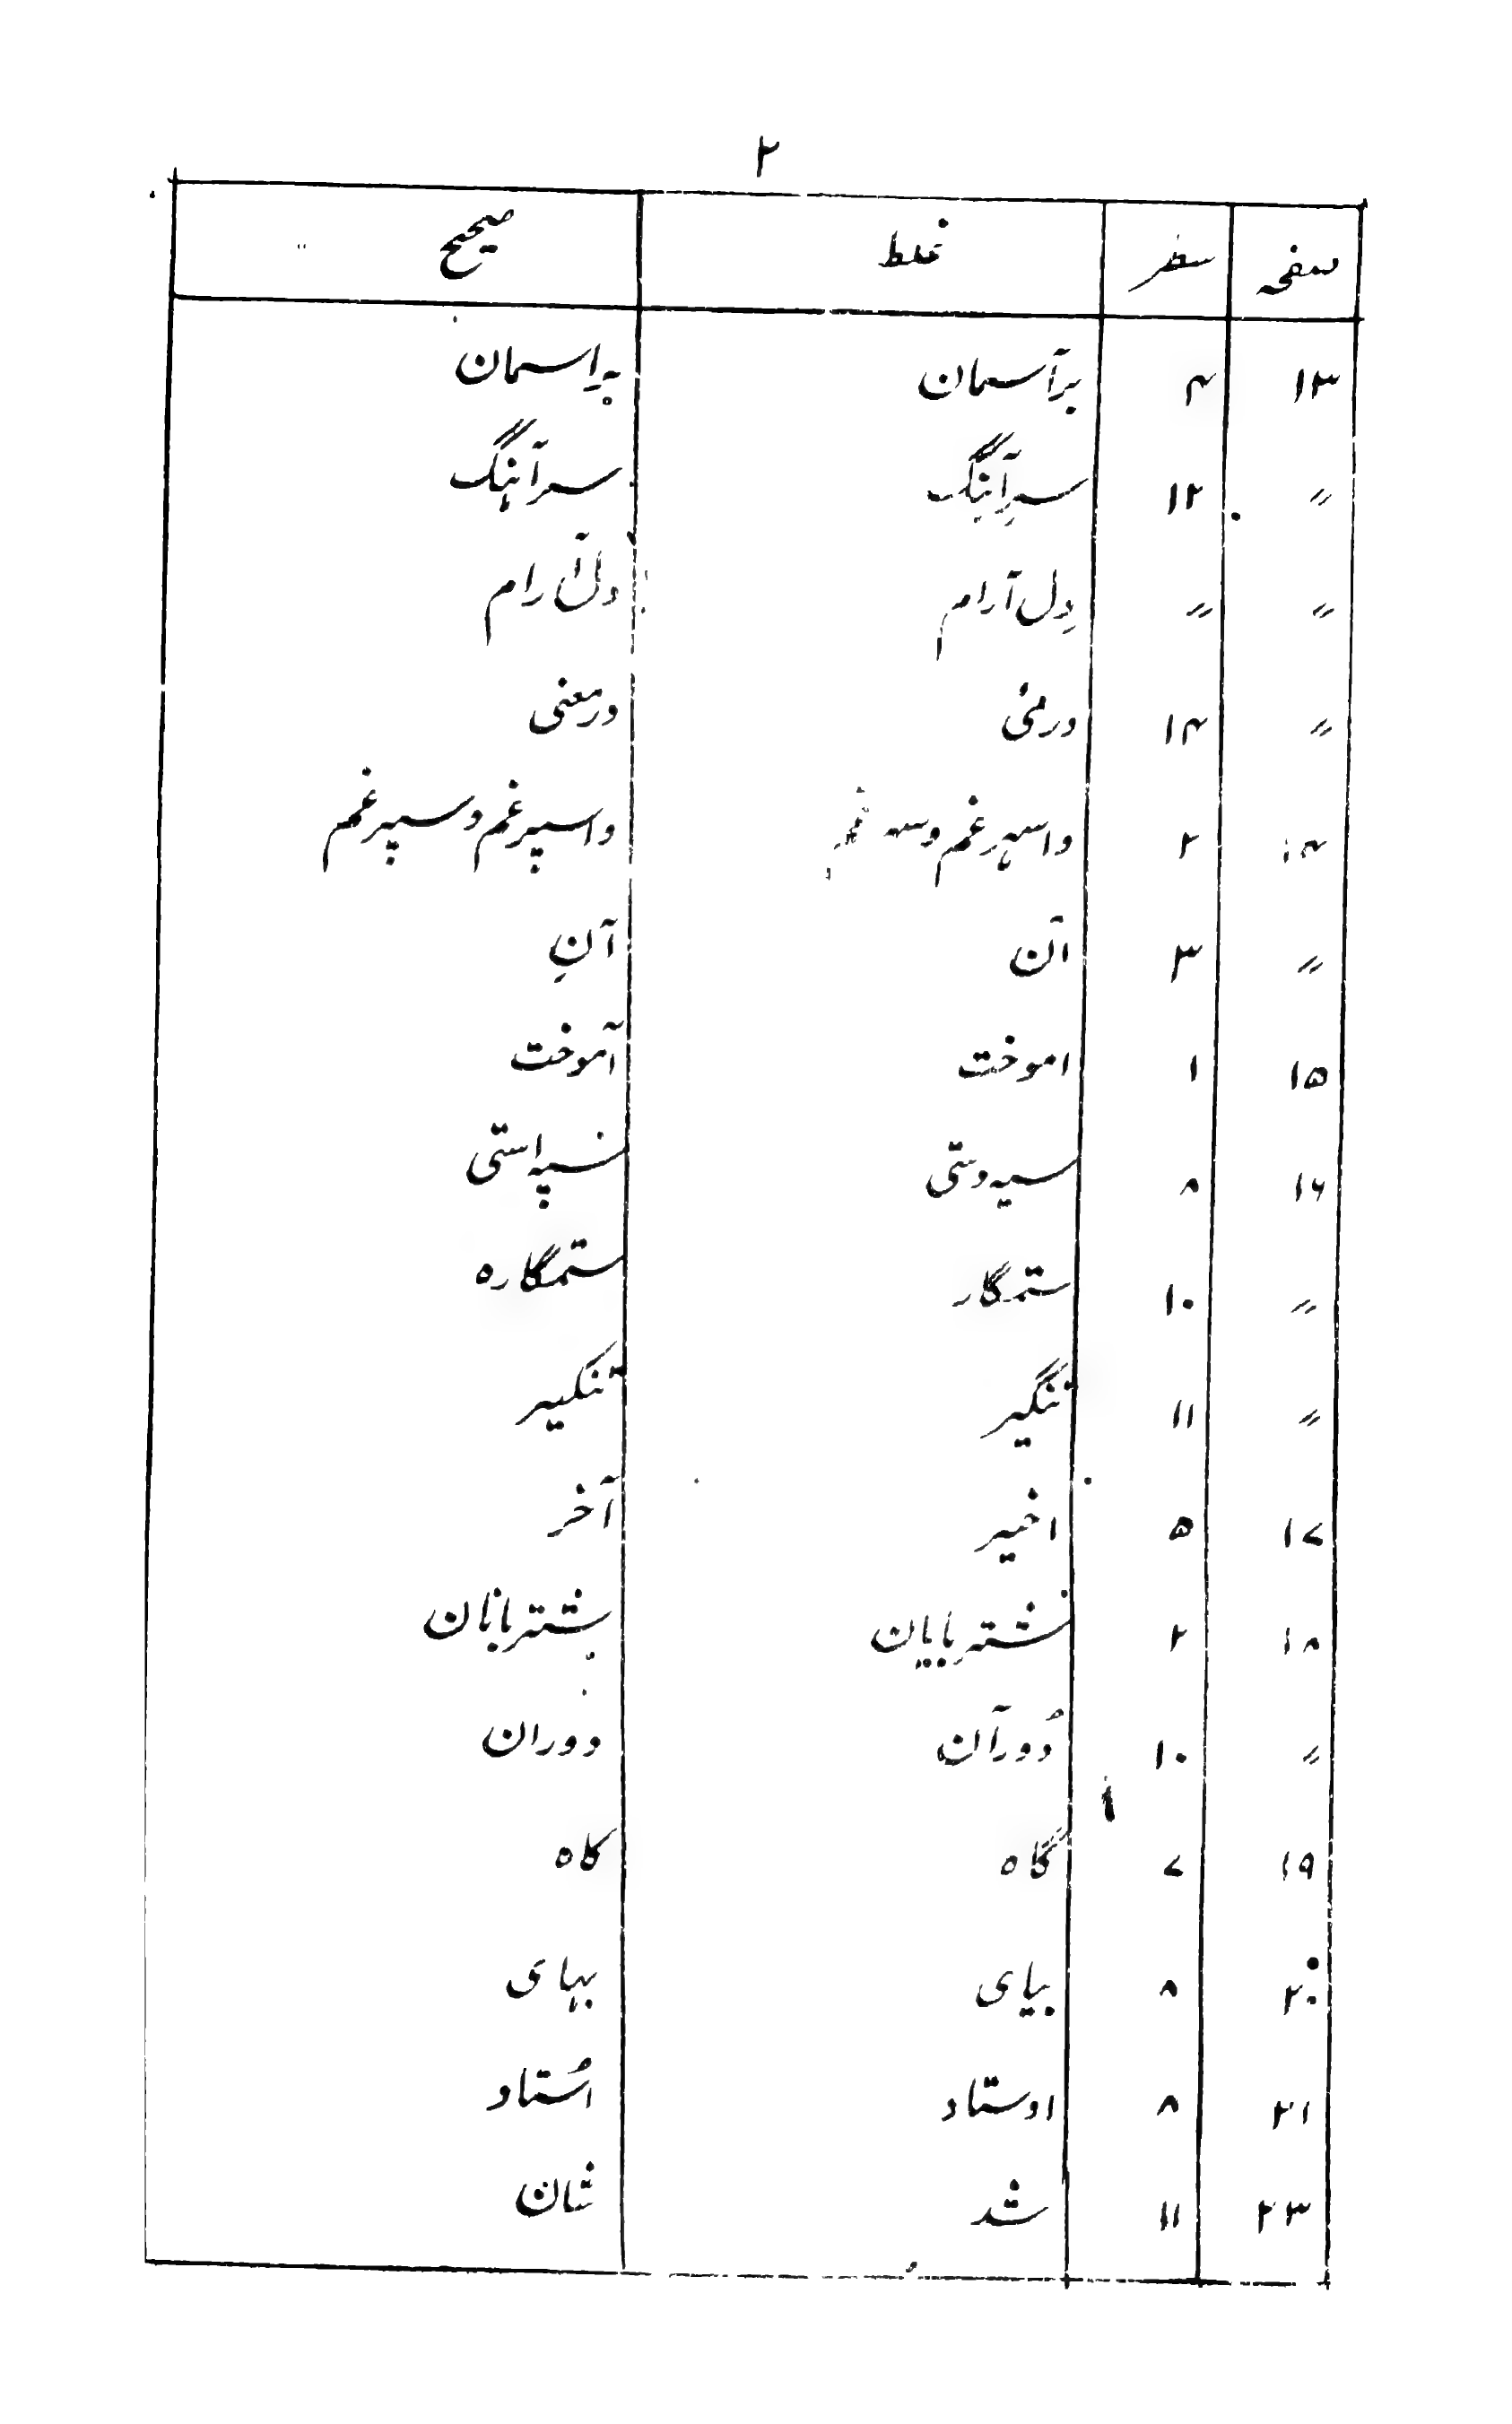 ۲
صفحہ سطر غلط صحیح
۱۳ ۴ برآسمان براسمان
〃 ۱۲ سرآہنگ سرآہنگ
〃 〃 دِل آرام دل آرام
〃 ۱۴ ورمنی ورمعنی
۱۴ ۲ واسپرغم و واسپرغم وسپرغم
〃 ۳ اٰن آنِ
۱۵ ۱ اموخت آموخت
۱۶ ۸ سیہ دستی نسپہ استی
〃 ۱۰ ستمگار ستمگارہ
〃 ۱۱ تنگیر تنکیر
۱۷ ۵ اخیر آخر
۱۸ ۲ نشتربایان بشتربانان
〃 ۱۰ دُورآن دوران
۱۹ ۷ گاہ کاہ
۲۰ ۸ بیای بہای
۲۱ ۸ اوستاد اُستاد
۲۳ ۱۱ شد شان